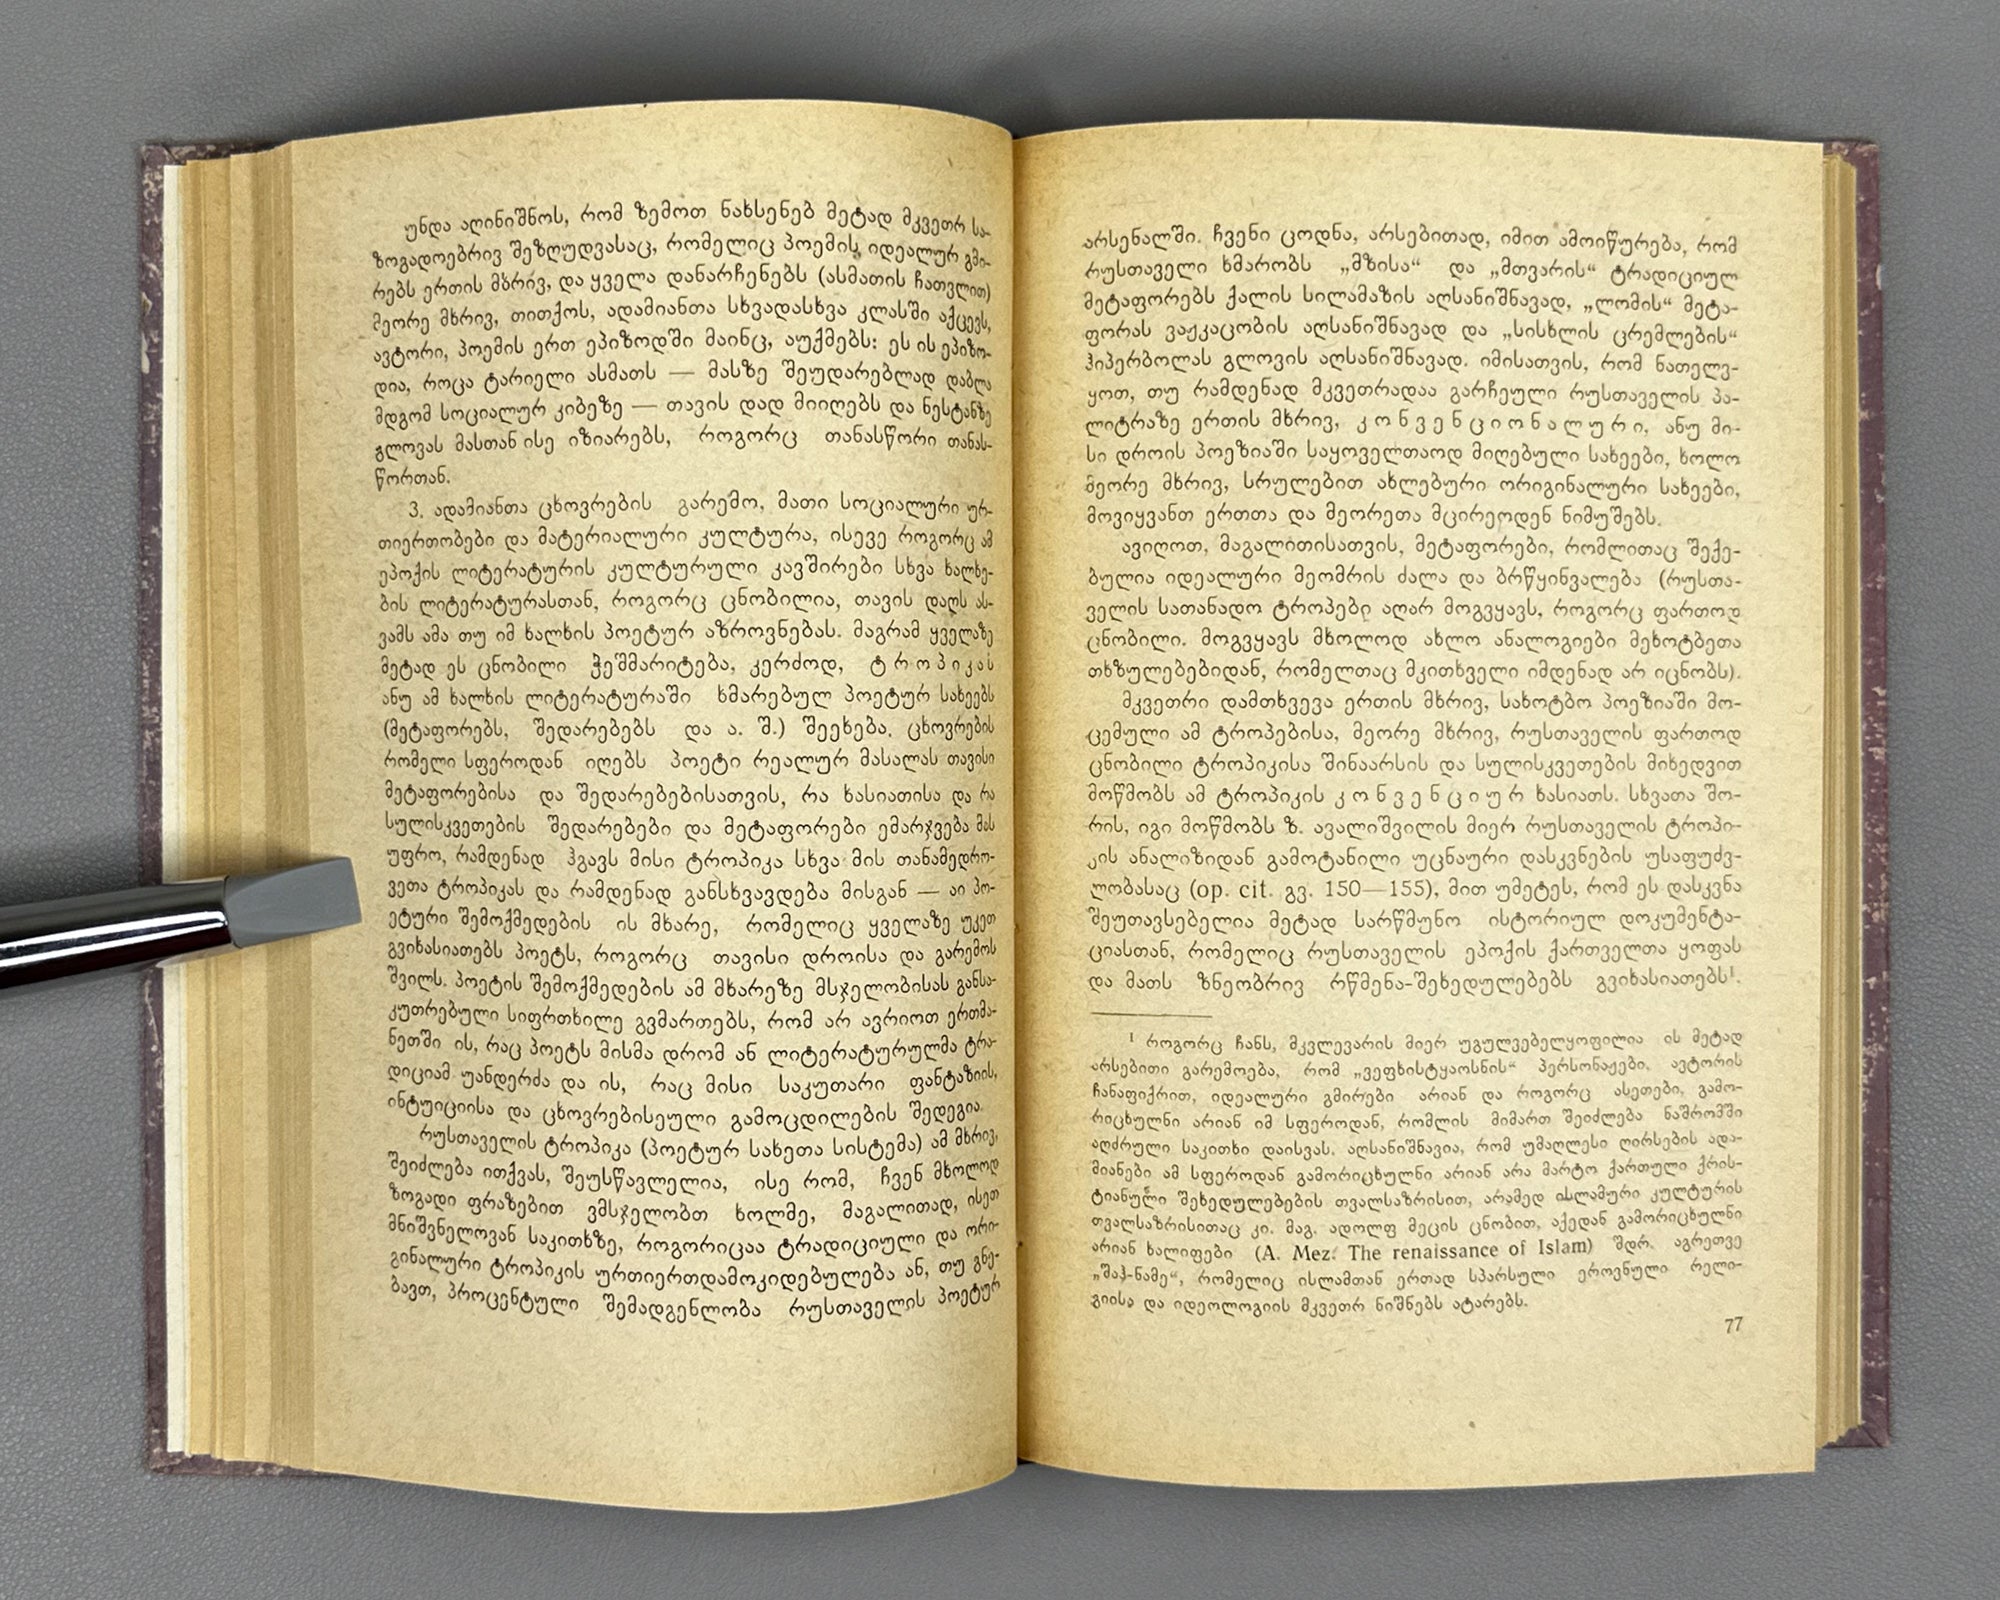 უნდა აღინიშნოს, რომ ზემოთ ნახსენებ მეტად მკვეთრ სა-
ზოგადოებრივ შეზღუდვასაც, რომელიც პოემის იდეალურ გმი-
რებს ერთის მხრივ, და ყველა დანარჩენებს (ასმათის ჩათვლით)
მეორე მხრივ, თითქოს, ადამიანთა სხვადასხვა კლასში აქცევს,
ავტორი, პოემის ერთ ეპიზოდში მაინც, აუქმებს: ეს ის ეპიზო-
დია, როცა ტარიელი ასმათს — მასზე შეუდარებლად დაბლა
მდგომ სოციალურ კიბეზე — თავის დად მიიღებს და ნესტანზე
გლოვას მასთან ისე იზიარებს, როგორც თანასწორი თანას-
წორთან.
3. ადამიანთა ცხოვრების გარემო, მათი სოციალური ურ-
თიერთობები და მატერიალური კულტურა, ისევე როგორც ამ
ეპოქის ლიტერატურის კულტურული კავშირები სხვა ხალხე-
ბის ლიტერატურასთან, როგორც ცნობილია, თავის დაღს ას-
ვამს ამა თუ იმ ხალხის პოეტურ აზროვნებას. მაგრამ ყველაზე
მეტად ეს ცნობილი ჭეშმარიტება, კერძოდ, ტროპიკას
ანუ ამ ხალხის ლიტერატურაში ხმარებულ პოეტურ სახეებს
(მეტაფორებს, შედარებებს და ა. შ.) შეეხება. ცხოვრების
რომელი სფეროდან იღებს პოეტი რეალურ მასალას თავისი
მეტაფორებისა და შედარებებისათვის, რა ხასიათისა და რა
სულისკვეთების შედარებები და მეტაფორები ემარჯვება მას
უფრო, რამდენად ჰგავს მისი ტროპიკა სხვა მის თანამედრო-
ვეთა ტროპიკას და რამდენად განსხვავდება მისგან — აი პო-
ეტური შემოქმედების ის მხარე, რომელიც ყველაზე უკეთ
გვიხასიათებს პოეტს, როგორც თავისი დროისა და გარემოს
შვილს. პოეტის შემოქმედების ამ მხარეზე მსჯელობისას განსა-
კუთრებული სიფრთხილე გვმართებს, რომ არ ავრიოთ ერთმა-
ნეთში ის, რაც პოეტს მისმა დრომ ან ლიტერატურულმა ტრა-
დიციამ უანდერძა და ის, რაც მისი საკუთარი ფანტაზიის,
ინტუიციისა და ცხოვრებისეული გამოცდილების შედეგია.
რუსთაველის ტროპიკა (პოეტურ სახეთა სისტემა) ამ მხრივ,
შეიძლება ითქვას, შეუსწავლელია, ისე რომ, ჩვენ მხოლოდ
ზოგადი ფრაზებით ვმსჯელობთ ხოლმე, მაგალითად, ისეთ
მნიშვნელოვან საკითხზე, როგორიცაა ტრადიციული და ორი-
გინალური ტროპიკის ურთიერთდამოკიდებულება ან, თუ გნე-
ბავთ, პროცენტული შემადგენლობა რუსთაველის პოეტურ
არსენალში. ჩვენი ცოდნა, არსებითად, იმით ამოიწურება, რომ
რუსთაველი ხმარობს „მზისა“ და „მთვარის“ ტრადიციულ
მეტაფორებს ქალის სილამაზის აღსანიშნავად, „ლომის“ მეტა-
ფორას ვაჟკაცობის აღსანიშნავად და „სისხლის ცრემლების“
ჰიპერბოლას გლოვის აღსანიშნავად. იმისათვის, რომ ნათელვ-
ყოთ, თუ რამდენად მკვეთრადაა გარჩეული რუსთაველის პა-
ლიტრაზე ერთის მხრივ, კონვენციონალური, ანუ მი-
სი დროის პოეზიაში საყოველთაოდ მიღებული სახეები, ხოლო
მეორე მხრივ, სრულებით ახლებური ორიგინალური სახეები,
მოვიყვანთ ერთთა და მეორეთა მცირეოდენ ნიმუშებს.
ავიღოთ, მაგალითისათვის, მეტაფორები, რომლითაც შექე-
ბულია იდეალური მეომრის ძალა და ბრწყინვალება (რუსთა-
ველის სათანადო ტროპები აღარ მოგვყავს, როგორც ფართოდ
ცნობილი. მოგვყავს მხოლოდ ახლო ანალოგიები მეხოტბეთა
თხზულებებიდან, რომელთაც მკითხველი იმდენად არ იცნობს).
მკვეთრი დამთხვევა ერთის მხრივ, სახოტბო პოეზიაში მო-
ცემული ამ ტროპებისა, მეორე მხრივ, რუსთაველის ფართოდ
ცნობილი ტროპიკისა შინაარსის და სულისკვეთების მიხედვით
მოწმობს ამ ტროპიკის კონვენციურ ხასიათს. სხვათა შო-
რის, იგი მოწმობს ზ. ავალიშვილის მიერ რუსთაველის ტროპი-
კის ანალიზიდან გამოტანილი უცნაური დასკვნების უსაფუძვ-
ლობასაც (op. cit. გვ. 150—155), მით უმეტეს, რომ ეს დასკვნა
შეუთავსებელია მეტად სარწმუნო ისტორიულ დოკუმენტა-
ციასთან, რომელიც რუსთაველის ეპოქის ქართველთა ყოფას
და მათს ზნეობრივ რწმენა-შეხედულებებს გვიხასიათებს¹.
¹ როგორც ჩანს, მკვლევარის მიერ უგულვებელყოფილია ის მეტად
არსებითი გარემოება, რომ „ვეფხისტყაოსნის“ პერსონაჟები, ავტორის
ჩანაფიქრით, იდეალური გმირები არიან და როგორც ასეთები, გამო-
რიცხულნი არიან იმ სფეროდან, რომლის მიმართ შეიძლება ნაშრომში
აღძრული საკითხი დაისვას. აღსანიშნავია, რომ უმაღლესი ღირსების ადა-
მიანები ამ სფეროდან გამორიცხულნი არიან არა მარტო ქართული ქრის-
ტიანული შეხედულებების თვალსაზრისით, არამედ ისლამური კულტურის
თვალსაზრისითაც კი. მაგ. ადოლფ მეცის ცნობით, აქედან გამორიცხულნი
არიან ხალიფები (A. Mez. The renaissance of Islam) შდრ. აგრეთვე
„შაჰ-ნამე“, რომელიც ისლამთან ერთად სპარსული ეროვნული რელი-
გიისა და იდეოლოგიის მკვეთრ ნიშნებს ატარებს.
77